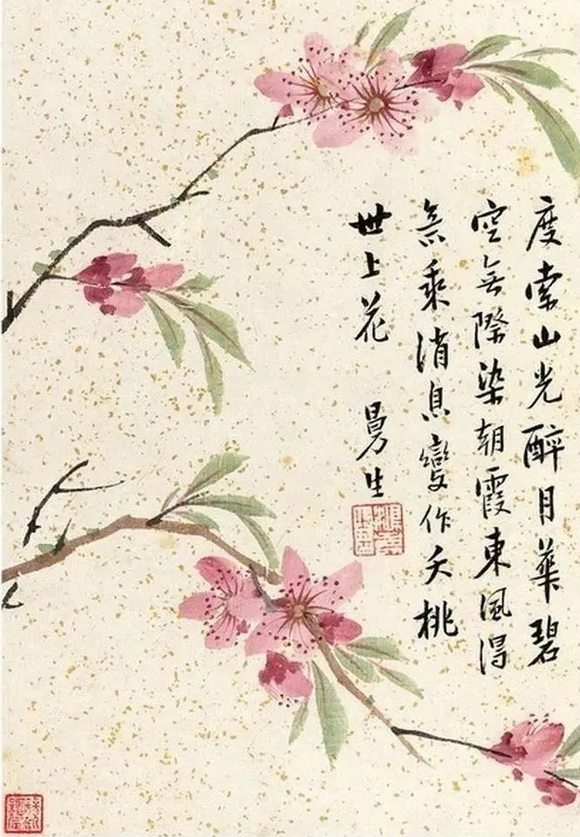 度索山光醉月華碧
空無際染朝霞東風得
炁乘消息變作夭桃
世上花
曼生